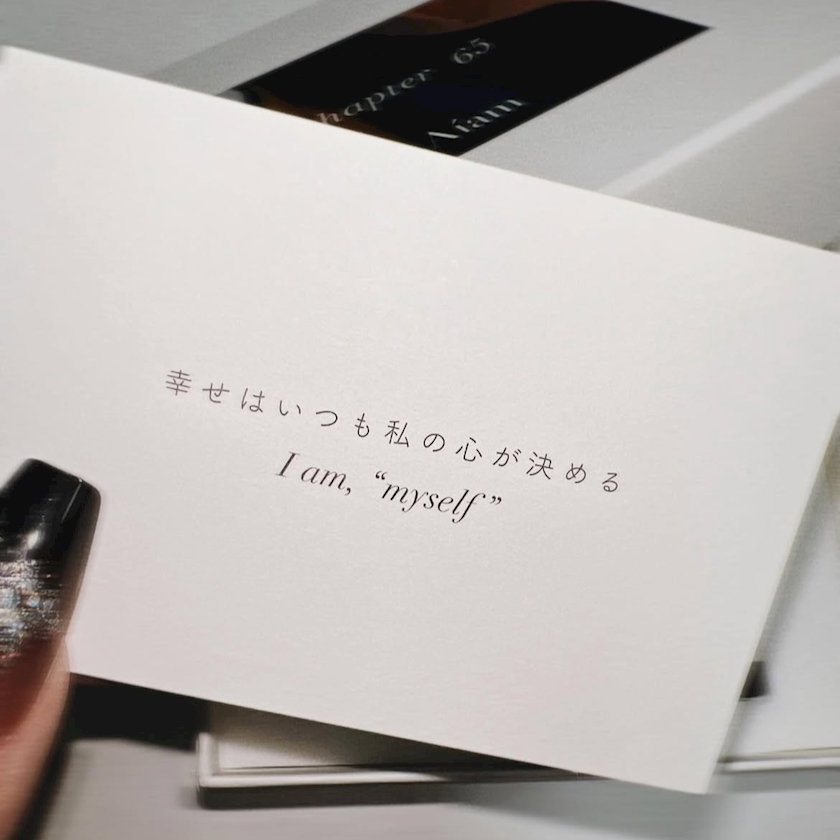 hapter 65
Niam
幸せはいつも私の心が決める
I am, “myself”